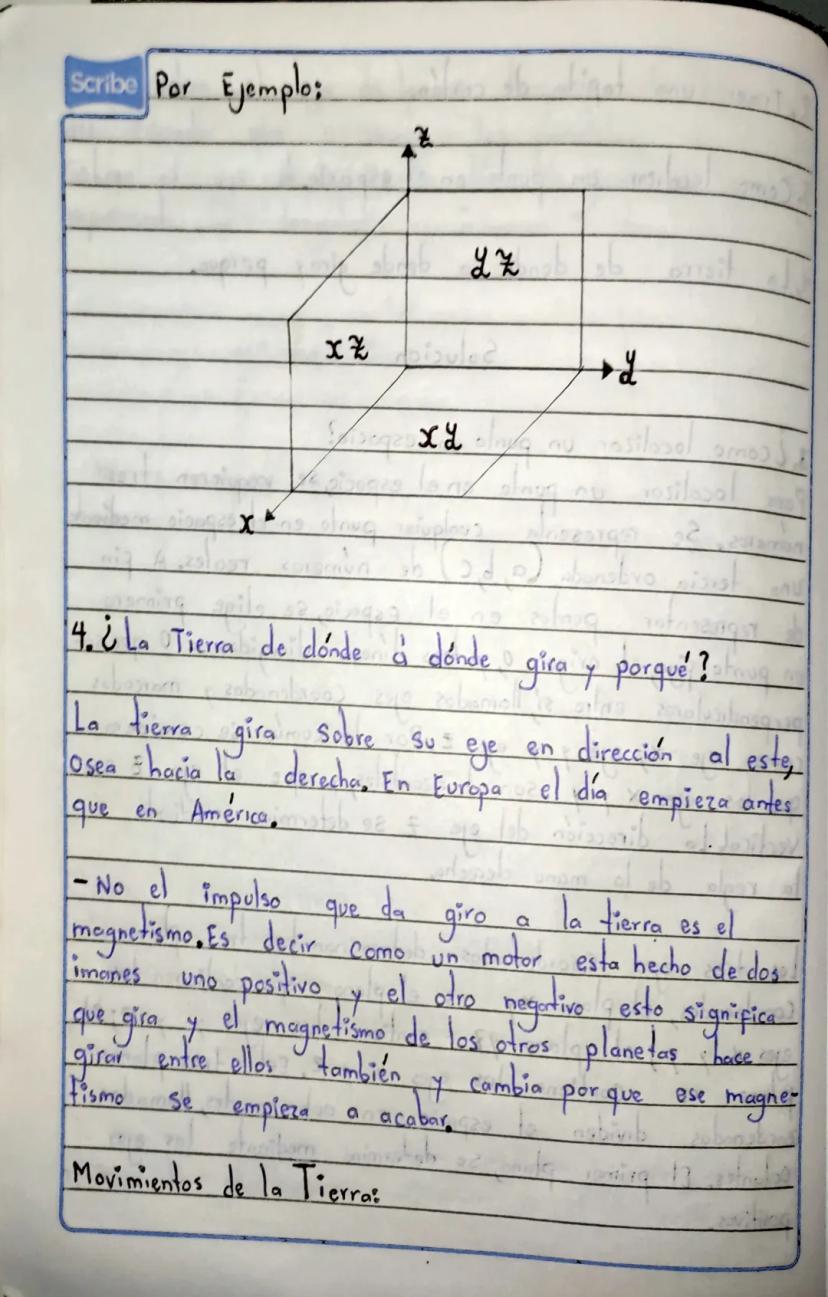 Scribe Por Ejemplo:
z
yz
xz
y
xy
x
4. ¿La Tierra de dónde á dónde gira y porqué?
La tierra gira sobre su eje en dirección al este,
Osea hacia la derecha. En Europa el día empieza antes
que en América.
- No el impulso que da giro a la tierra es el
magnetismo. Es decir como un motor esta hecho de dos
imanes uno positivo y el otro negativo esto significa
que gira y el magnetismo de los otros planetas hace
girar entre ellos también y cambia porque ese magne-
tismo se empieza a acabar.
Movimientos de la Tierra: